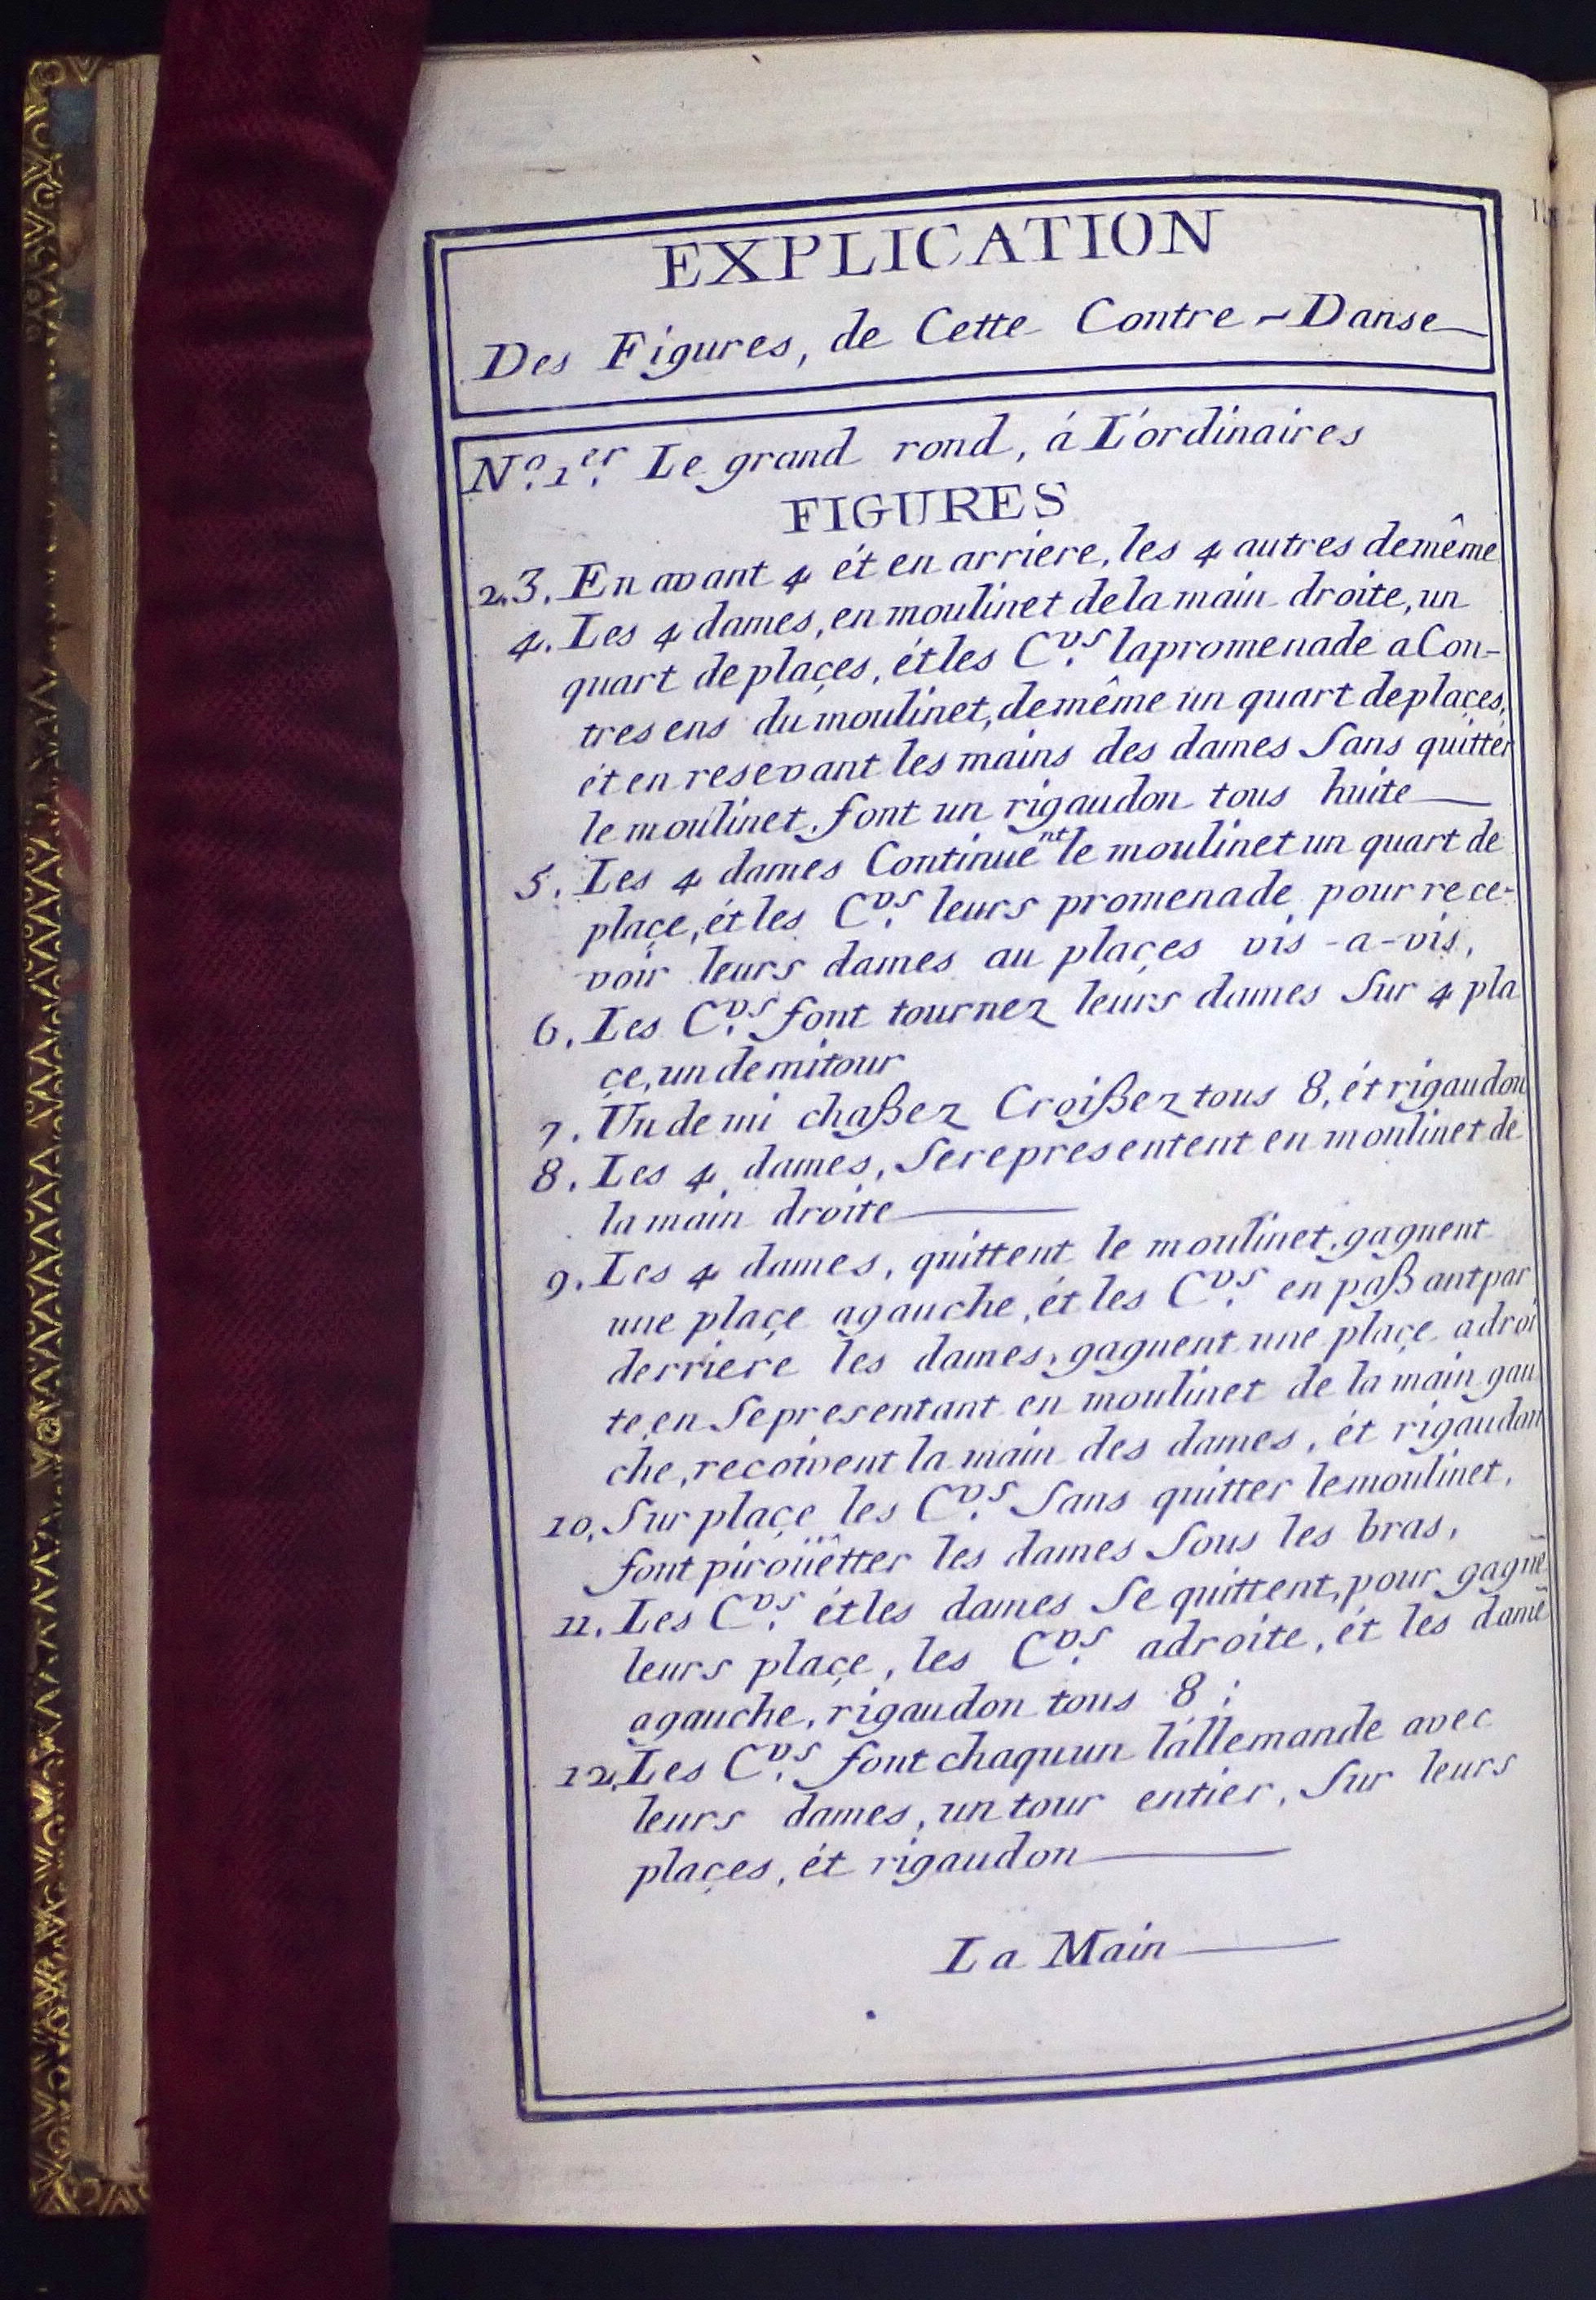 EXPLICATION
Des Figures, de Cette Contre-Danse
No. 1er. Le grand rond, á L'ordinaires
FIGURES
2.3. En avant 4 ét en arriere, les 4 autres demême
4. Les 4 dames, en moulinet dela main droite, un
quart de plaçes, ét les Cvs. lapromenade a Con-
tresens du moulinet, demême un quart deplaçes,
ét en resevant les mains des dames Sans quitter
le moulinet, font un rigaudon tous huite
5. Les 4 dames Continuent le moulinet un quart de
plaçe, ét les Cvs. leurs promenade pour rece-
voir leurs dames au plaçes vis-a-vis,
6. Les Cvs. font tournez leurs dames Sur 4 pla
çe, un demitour
7. Un demi chaßez Croißez tous 8, ét rigaudon
8. Les 4 dames, Serepresentent en moulinet de
la main droite
9. Les 4 dames, quittent le moulinet, gagnent
une plaçe agauche, ét les Cvs. en paßant par
derriere les dames, gagnent une plaçe adroi
te, en Sepresentant en moulinet de la main gau
che, recoivent la main des dames, ét rigaudon
10. Sur plaçe les Cvs. Sans quitter lemoulinet,
font piroüêtter les dames Sous les bras,
11. Les Cvs. ét les dames Se quittent, pour gagnē
leurs plaçe, les Cvs. adroite, ét les damē
agauche, rigaudon tous 8 ;
12. Les Cvs. font chaquun l'allemande avec
leurs dames, un tour entier, Sur leurs
plaçes, ét rigaudon
La Main